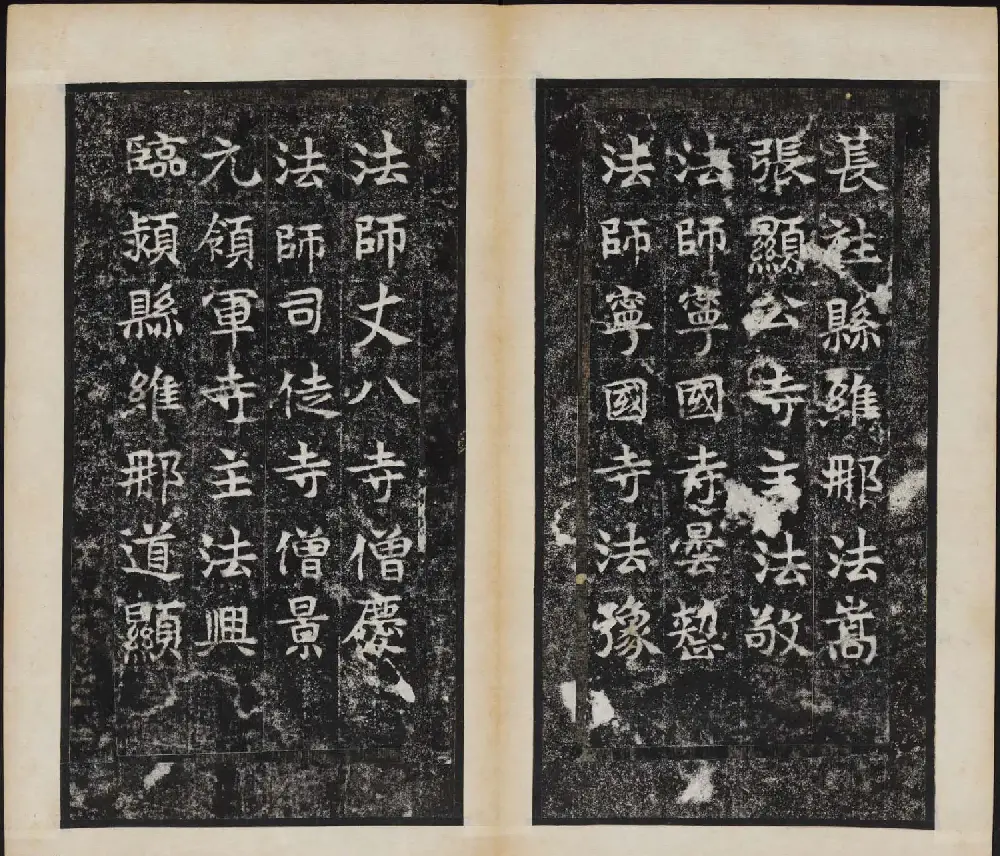 萇社縣維那法嵩
張顯公寺主法敬
法師寧國寺曇慜
法師寧國寺法豫
法師丈八寺僧慶
法師司徒寺僧景
元領軍寺主法興
臨潁縣維那道顯